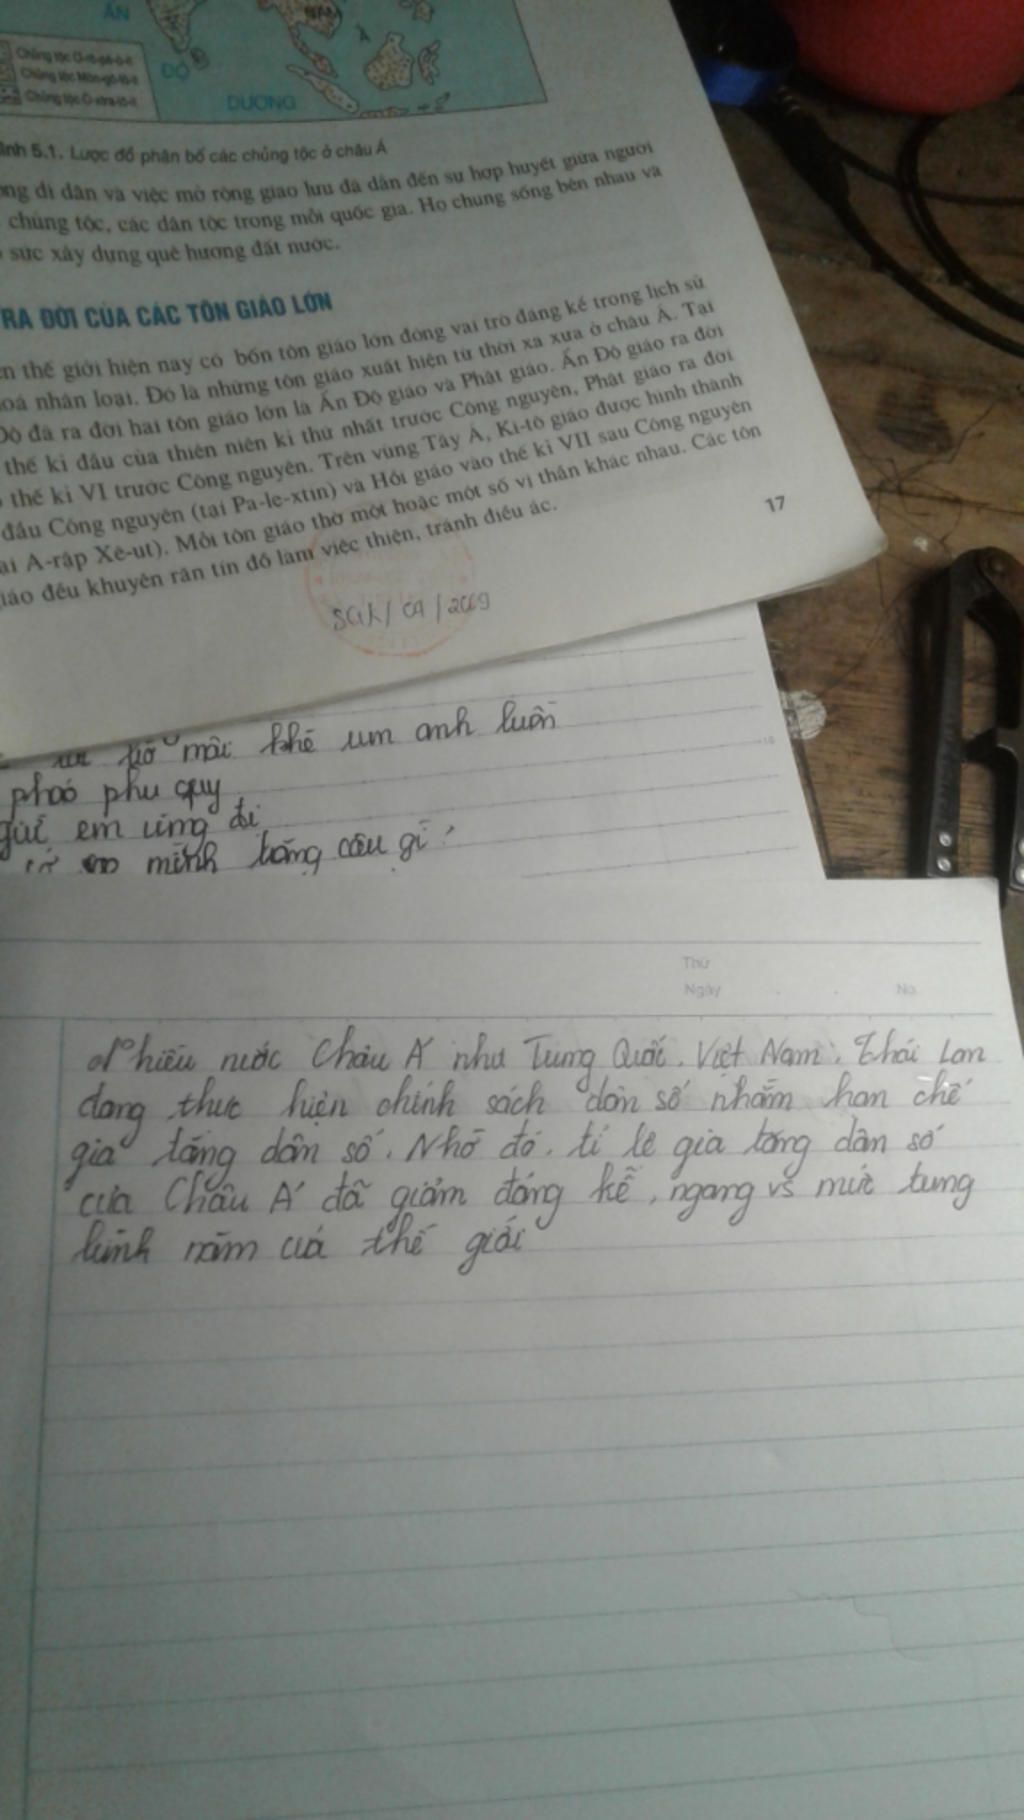 ẤN
ĐỘ
DƯƠNG
Chủng tộc Ơ-rô-pê-ô-it
Chủng tộc Môn-gô-lô-it
Chủng tộc Ô-xtra-lô-it
5.1. Lược đồ phân bố các chủng tộc ở châu Á
di dân và việc mở rộng giao lưu đã dẫn đến sự hợp huyết giữa người
chủng tộc, các dân tộc trong mỗi quốc gia. Họ chung sống bên nhau và
sức xây dựng quê hương đất nước.
RA ĐỜI CỦA CÁC TÔN GIÁO LỚN
thế giới hiện nay có bốn tôn giáo lớn đóng vai trò đáng kể trong lịch sử
nhân loại. Đó là những tôn giáo xuất hiện từ thời xa xưa ở châu Á. Tại
Độ đã ra đời hai tôn giáo lớn là Ấn Độ giáo và Phật giáo. Ấn Độ giáo ra đời
thế kỉ đầu của thiên niên kỉ thứ nhất trước Công nguyên, Phật giáo ra đời
thế kỉ VI trước Công nguyên. Trên vùng Tây Á, Ki-tô giáo được hình thành
đầu Công nguyên (tại Pa-le-xtin) và Hồi giáo vào thế kỉ VII sau Công nguyên
A-rập Xê-ut). Mỗi tôn giáo thờ một hoặc một số vị thần khác nhau. Các tôn
đều khuyên răn tín đồ làm việc thiện, tránh điều ác.
17
SGK/ 09 / 2009
khẽ um anh luôn
phú quý
em ưng đi
mình bằng câu gì
Thứ
Ngày No
Nhiều nước Châu Á như Tung Quốc, Việt Nam, Thái Lan
đang thực hiện chính sách dân số nhằm hạn chế
gia tăng dân số. Nhờ đó, tỉ lệ gia tăng dân số
của Châu Á đã giảm đáng kể, ngang vs mức tung
bình năm củả thế giới